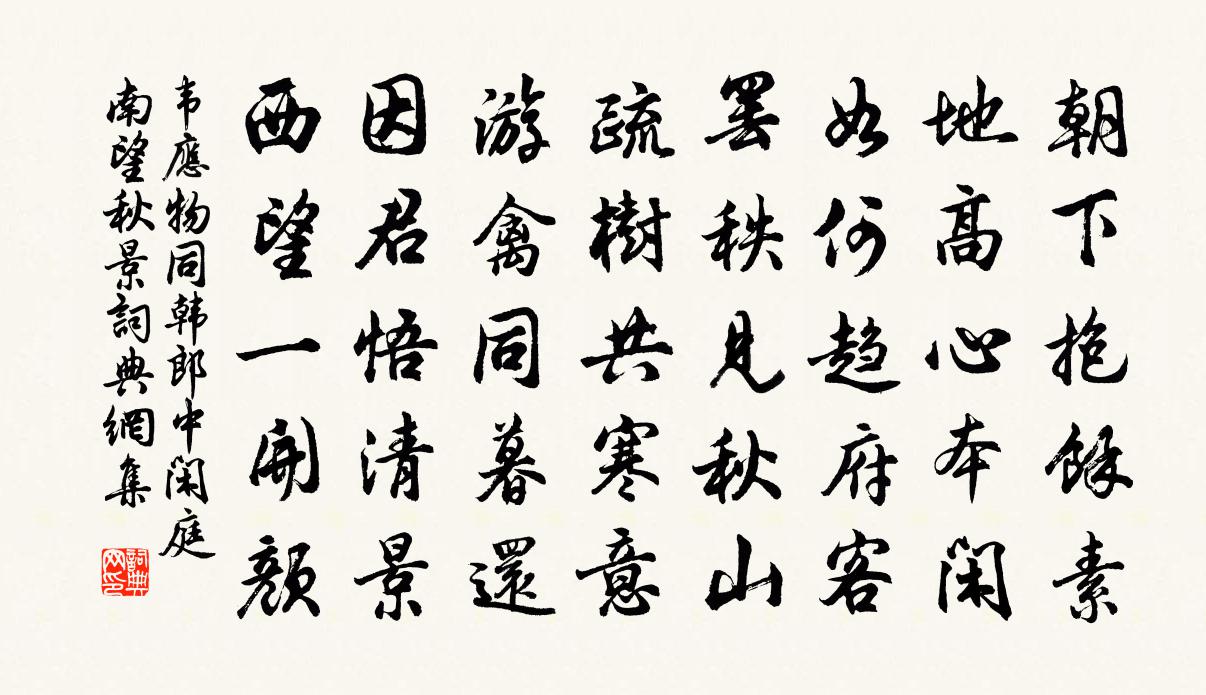 朝下抱餘素
地高心本闲
如何趋府客
罢秩見秋山
疏樹共寒意
游禽同暮還
因君悟清景
西望一開顔
韦應物同韩郎中闲庭
南望秋景詞典網集
詞典网印